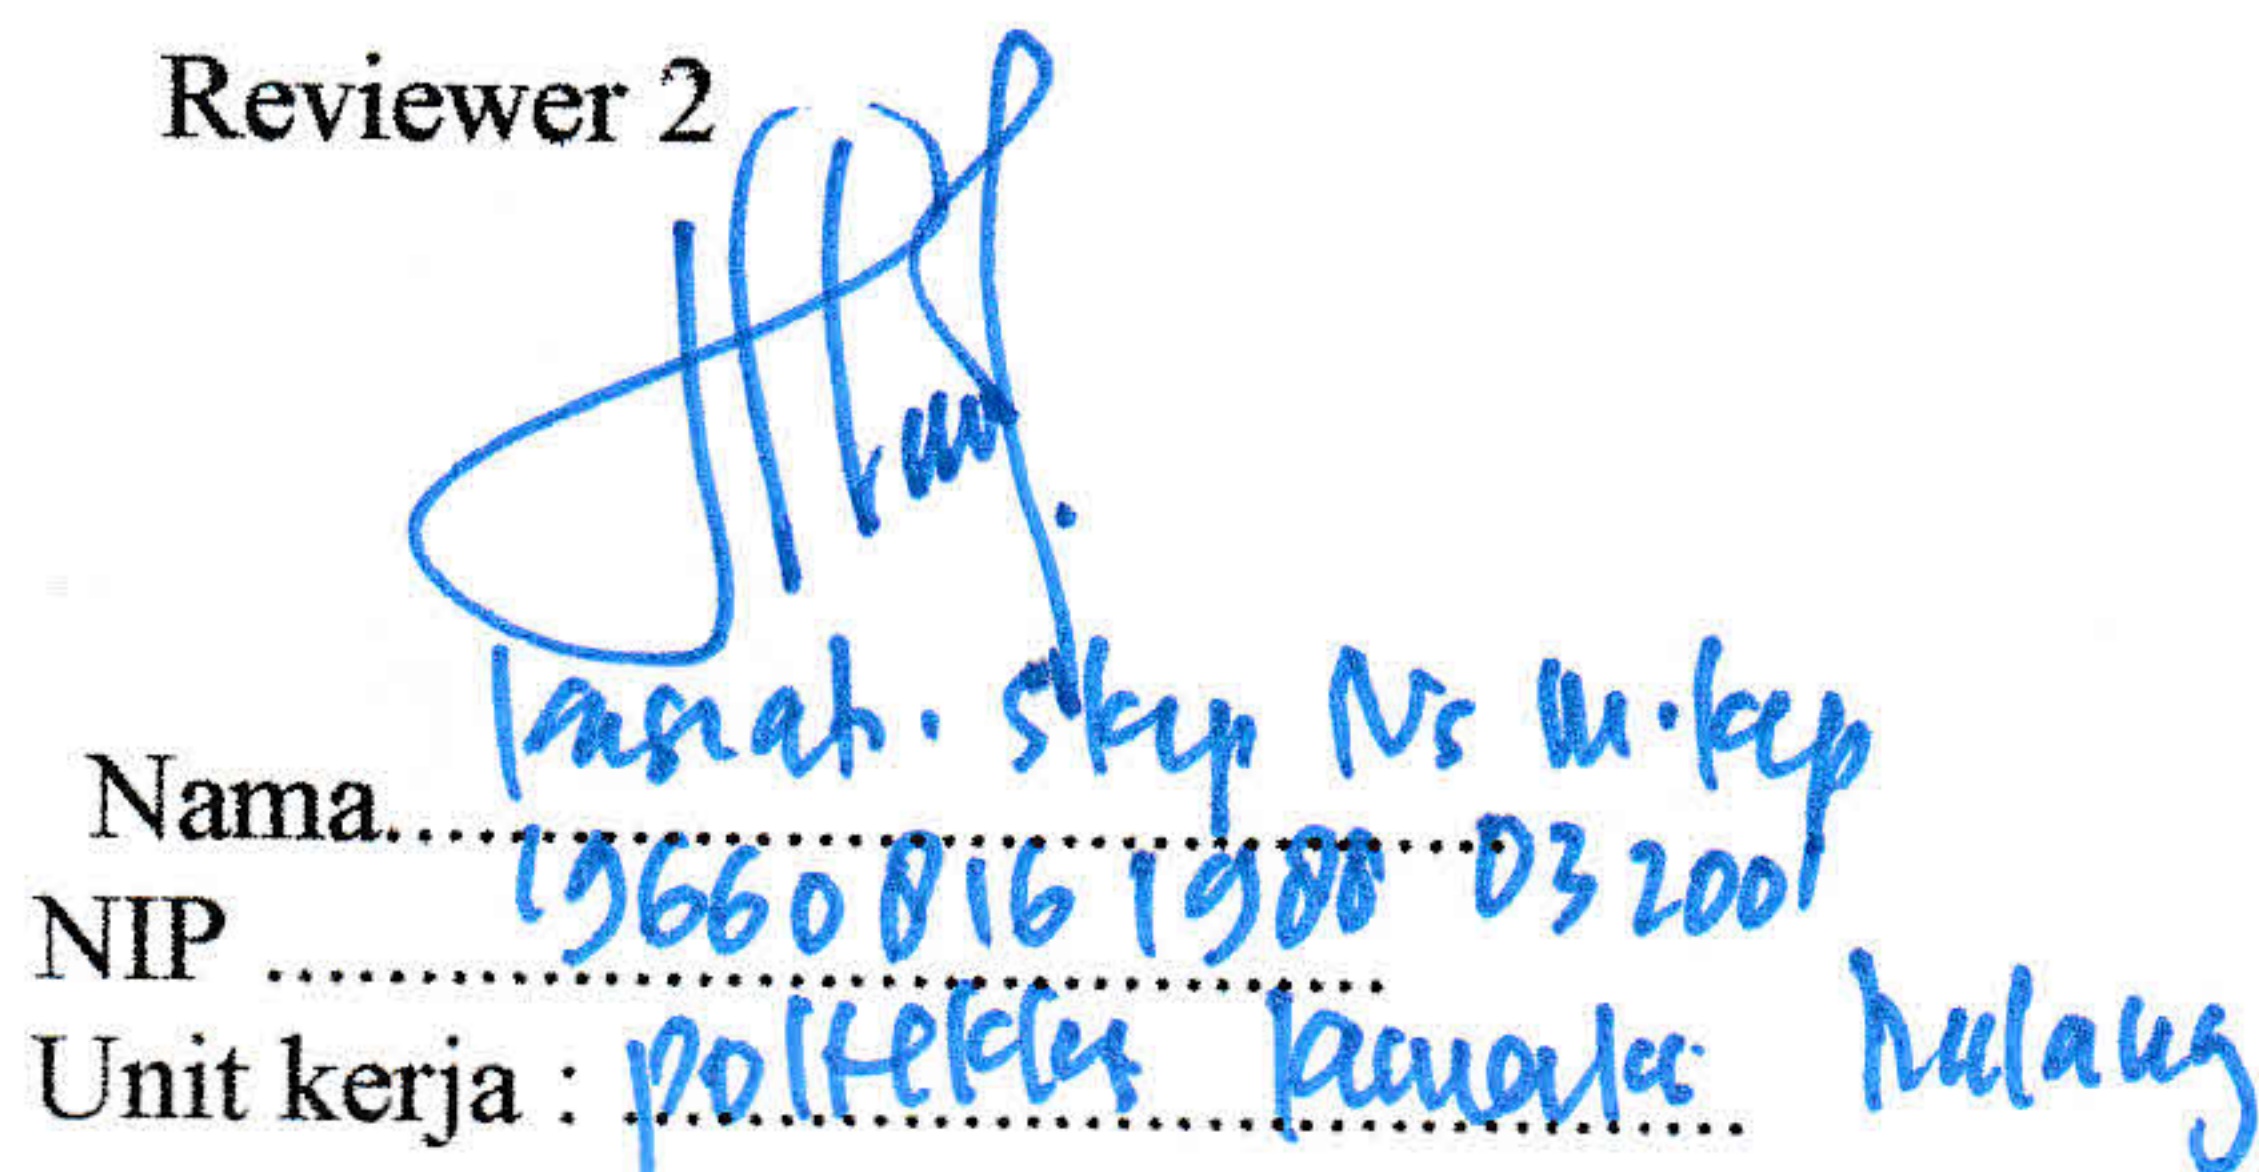 Reviewer 2
Kasiati. Skep Ns M.kep
Nama....................................
NIP 19660816 1988 03 2001
Unit kerja : poltekkes kemenkes Malang